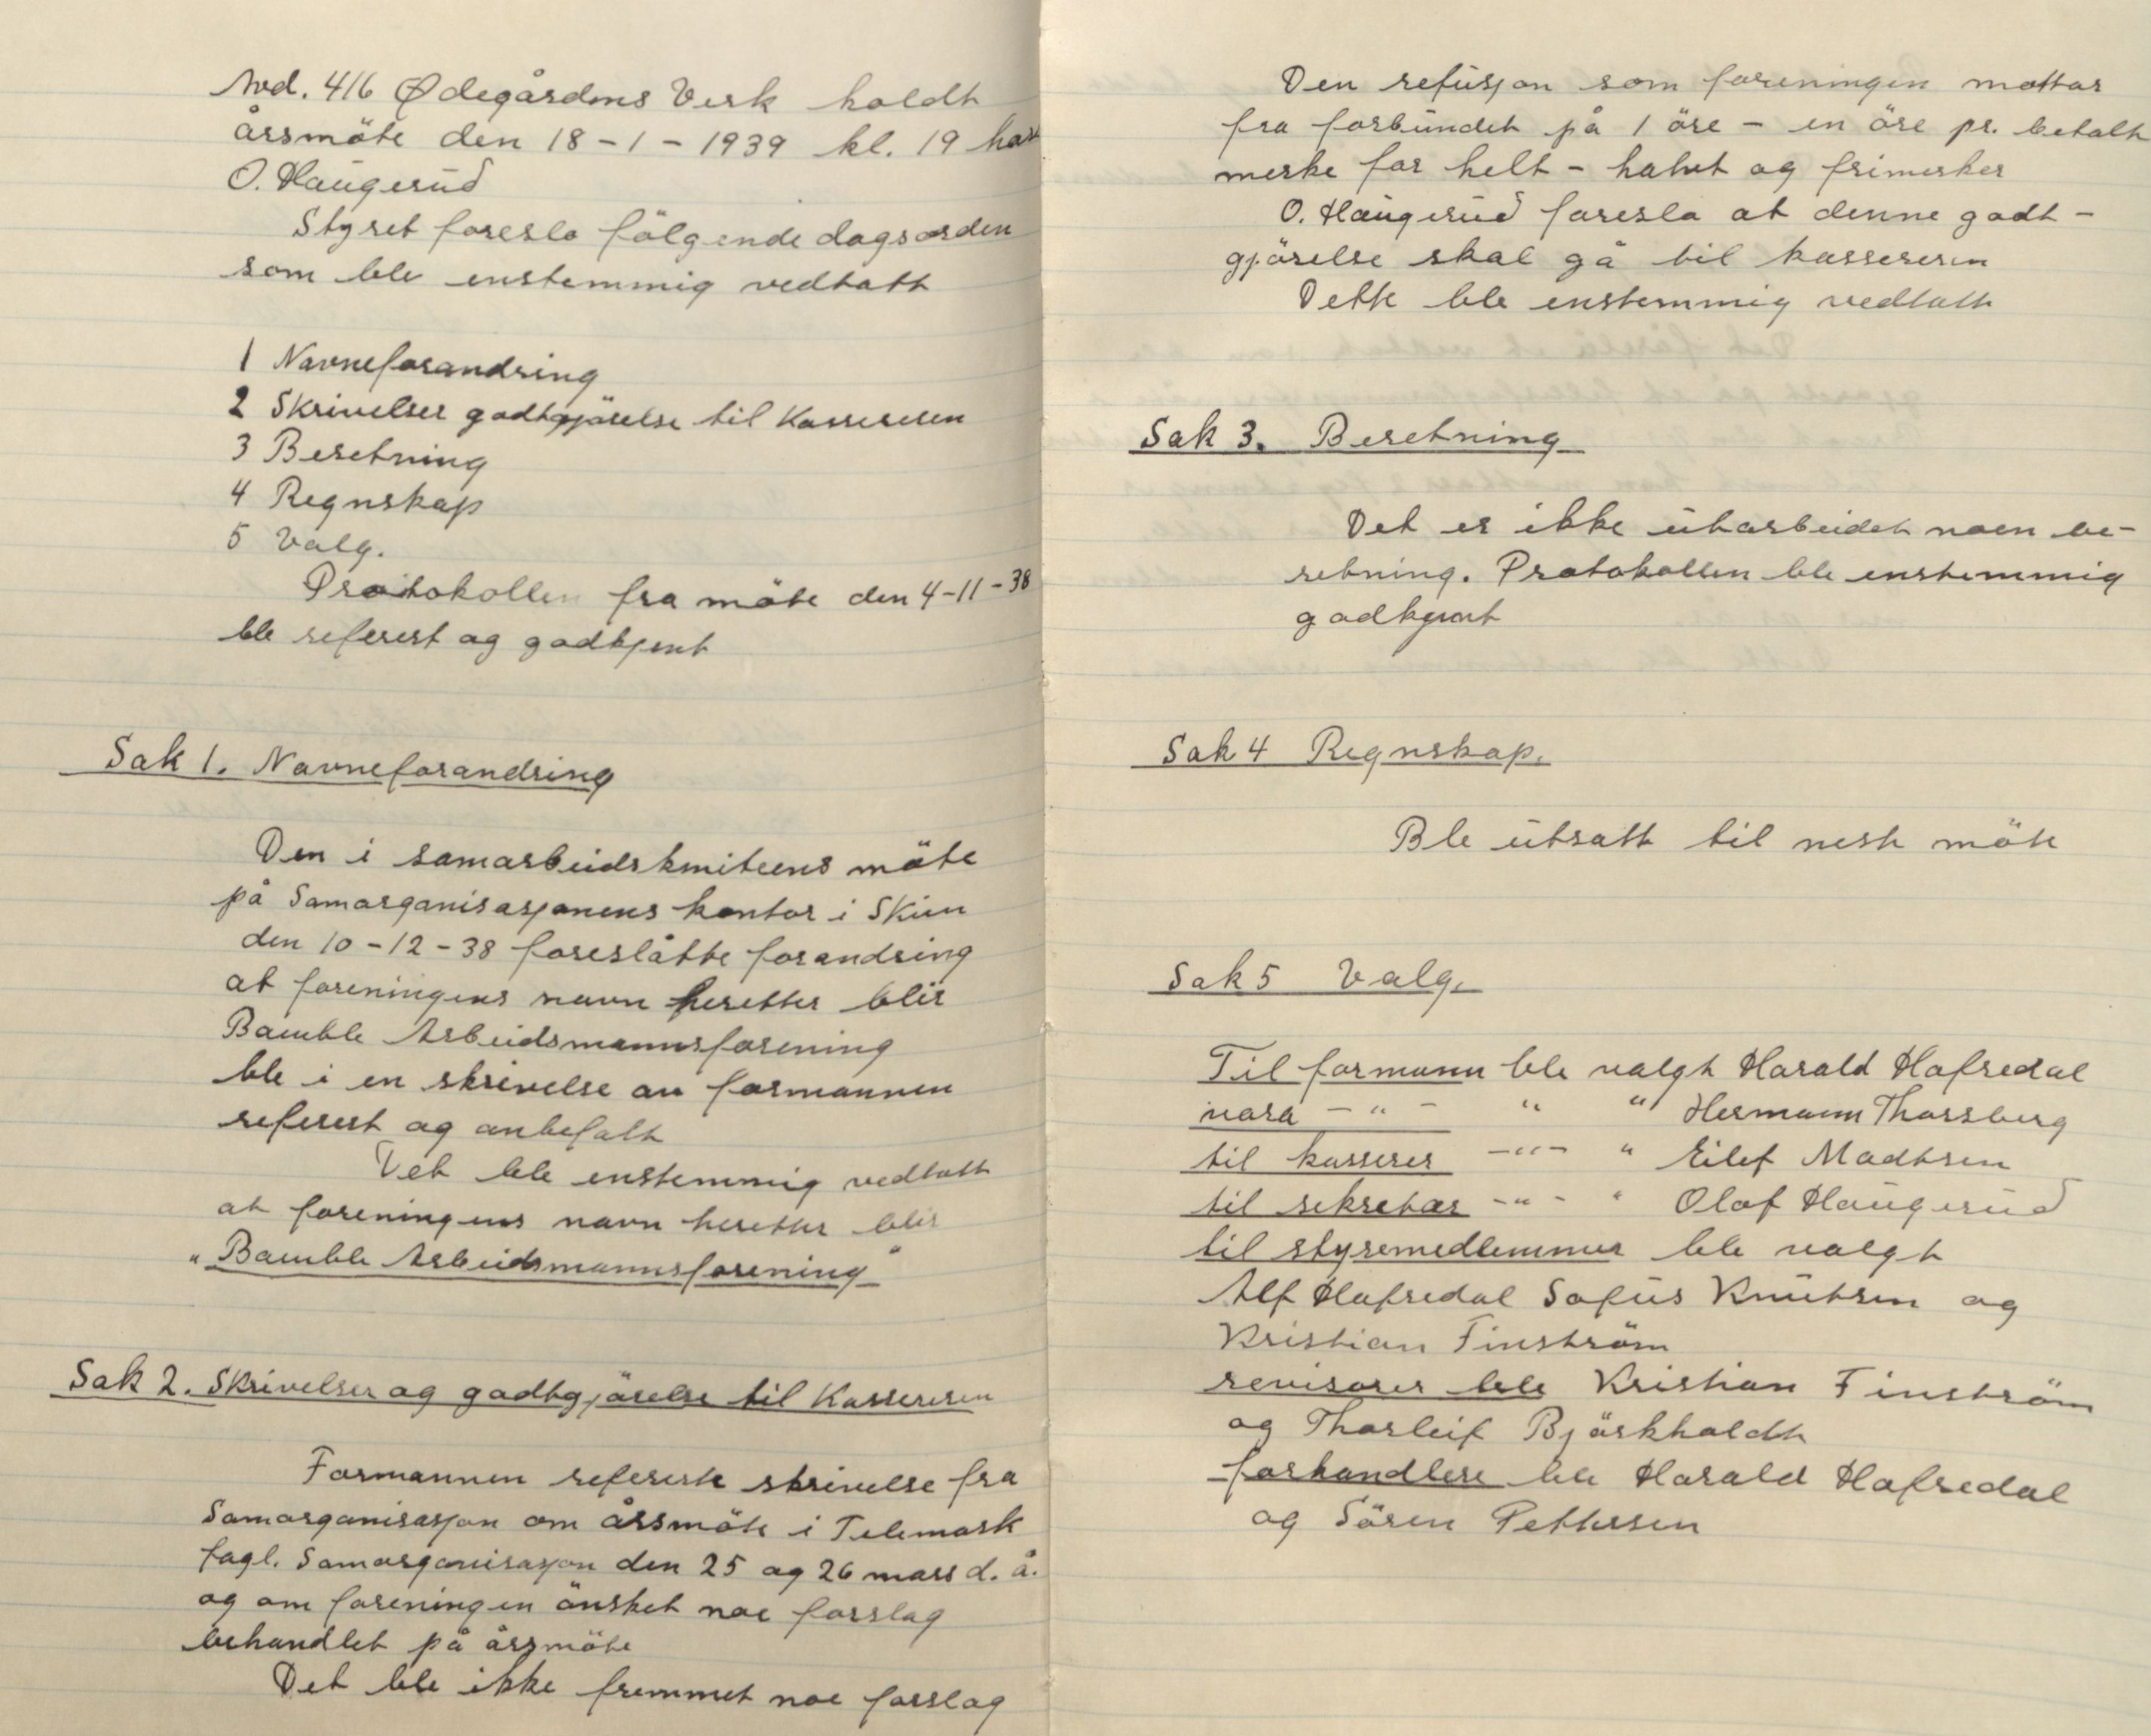 Avd. 416 Ødegårdens Verk holdt
årsmöte den 18-1-1939 kl. 19 hos
O. Haugerud
Styret foreslo fölgende dagsorden
som ble enstemmig vedtatt
1 Navneforandring
2 Skrivelser godtgjörelse til Kassereren
3 Beretning
4 Regnskap
5 Valg.
Protokollen fra möte den 4-11-38
ble referert og godkjent
Sak 1. Navneforandring
Den i samarbeidskmiteens möte
på Samorganisasjonens kontor i Skien
den 10-12-38 foreslåtte forandring
at foreningens navn heretter blir
Bamble Arbeidsmannsforening
ble i en skrivelse av formannen
referert og anbefalt
Det ble enstemmig vedtatt
at foreningens navn heretter blir
"Bamble Arbeidsmannsforening"
Sak 2. Skrivelser og godtgjörelse til Kassereren
Formannen refererte skrivelse fra
Samorganisasjon om årsmöte i Telemark
fagl. Samorganisasjon den 25 og 26 mars d. å.
og om foreningen önsket noe forslag
behandlet på årsmöte
Det ble ikke fremmet noe forslag
Den refusjon som foreningen mottar
fra forbundet på 1 öre - en öre pr. betalt
merke for helt - halvt og frimerker
O. Haugerud foreslo at denne godt-
gjörelse skal gå til kassereren
Dette ble enstemmig vedtatt
Sak 3. Beretning
Det er ikke utarbeidet noen be-
retning. Protokollen ble enstemmig
godkjent
Sak 4 Regnskap.
Ble utsatt til neste möte
Sak 5 Valg.
Til formann ble valgt Harald Hafredal
vara - " - " " Hermann Thorsberg
til kasserer - " - " Eilef Madtsen
til sekretær - " - " Olaf Haugerud
til styremedlemmer ble valgt
Alf Hafredal Sofus Knutsen og
Kristian Finström
revisorer ble Kristian Finström
og Thorleif Björkholdt
forhandlere ble Harald Hafredal
og Sören Pettersen